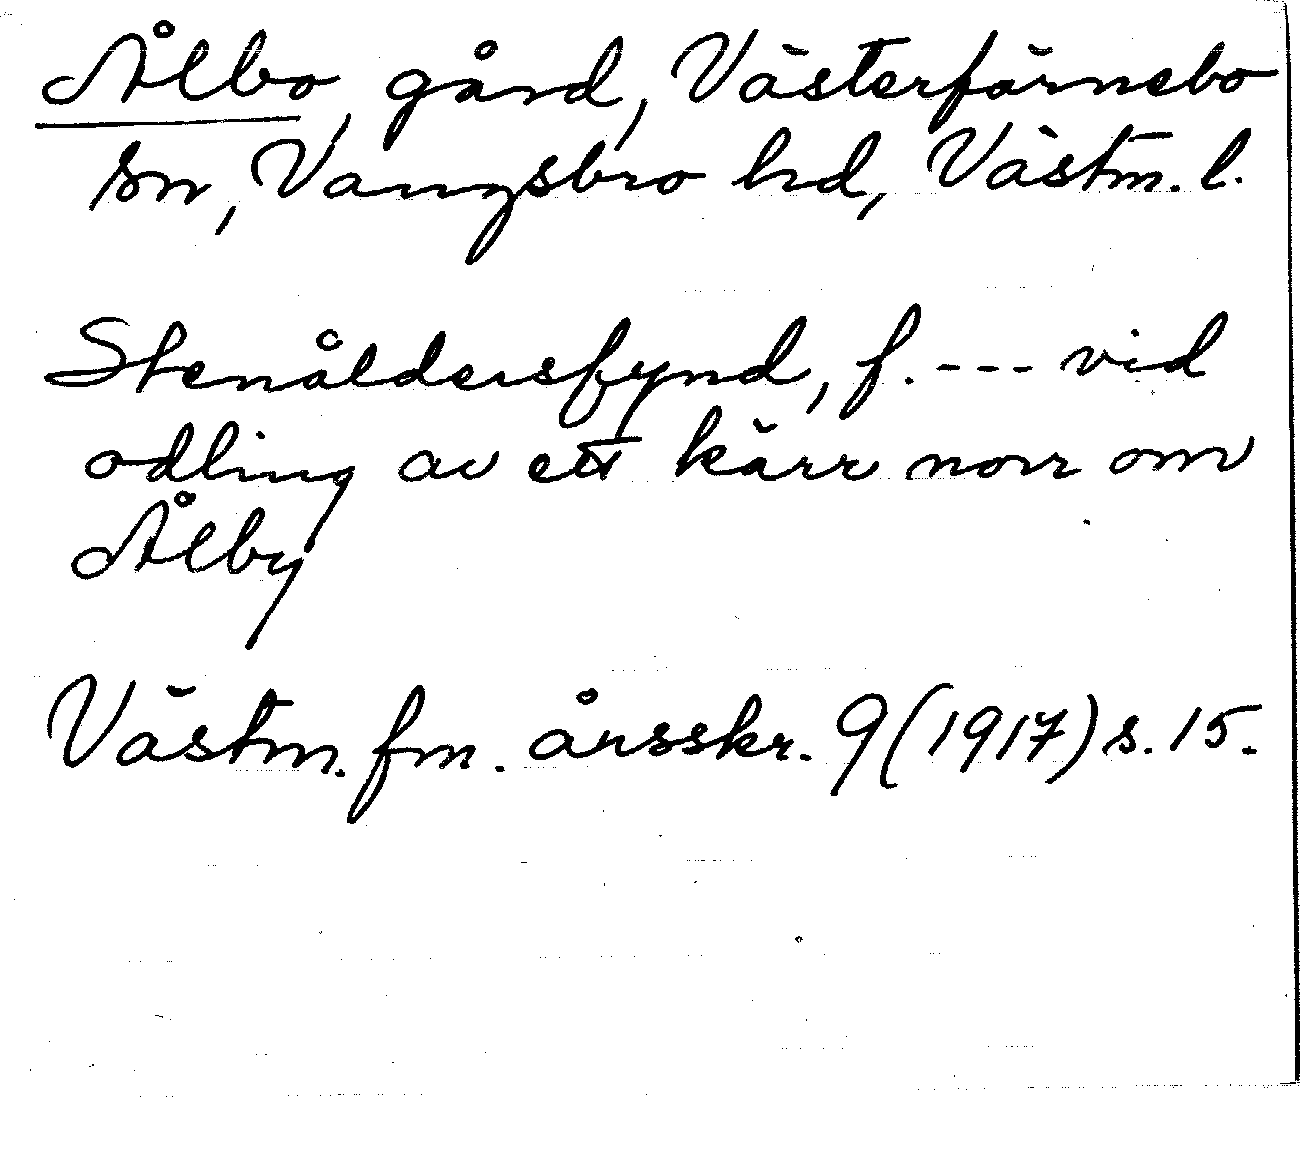 Ålbo, gård, Västerfärnebo
sn, Vangsbro hd, Västm. l.
Stenåldersfynd, f. --- vid
odling av ett kärr norr om
Ålby
Västm. fm. årsskr. 9 (1917) s. 15.